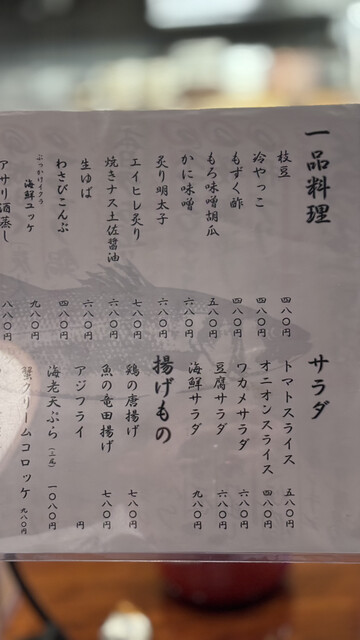 一品料理
枝豆 四八〇円
冷やっこ 四八〇円
もずく酢 四八〇円
もろ味噌胡瓜 五八〇円
かに味噌 六八〇円
炙り明太子 六八〇円
エイヒレ炙り 七八〇円
焼きナス土佐醤油 六八〇円
生ゆば 六八〇円
わさびこんぶ 四八〇円
ぶっかけイクラ
海鮮ユッケ 九八〇円
アサリ酒蒸し 八八〇円
サラダ
トマトスライス 五八〇円
オニオンスライス 四八〇円
ワカメサラダ 六八〇円
豆腐サラダ 六八〇円
海鮮サラダ 九八〇円
揚げもの
鶏の唐揚げ 七八〇円
魚の竜田揚げ 七八〇円
アジフライ 円
海老天ぷら 一〇八〇円
蟹クリームコロッケ 九八〇円